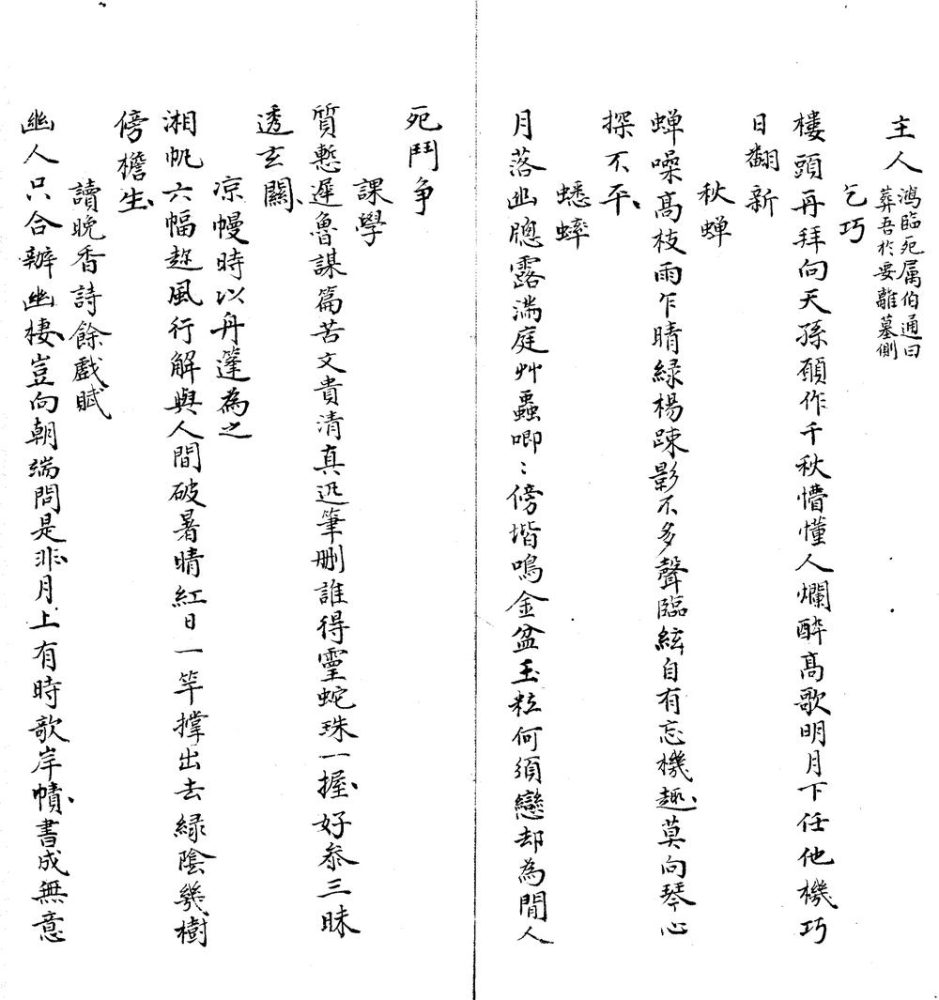 主人
鴻臨死属伯通曰
葬吾扵要離墓側
乞巧
樓頭再拜向天孫願作千秋懵懂人爛醉高歌明月下任他機巧
日翻新
秋蝉
蝉噪髙枝雨乍晴緑楊踈影不多聲臨絃自有忘機趣莫向琴心
探不平
蟋蟀
月落幽牕露满庭艸蟲唧〻傍堦鳴金盆玉粒何須戀却為閒人
死鬥争
課學
質慙遲魯謀篇苦文貴清真迅筆刪誰得靈蛇珠一握好叅三昧
透玄關
凉幔時以舟篷為之
湘帆六幅趂風行解與人間破暑晴紅日一竿撑出去緑陰幾樹
傍檐生
讀晩香詩餘戲賦
幽人只合辦幽棲豈向朝端問是非月上有時歌岸幘書成無意